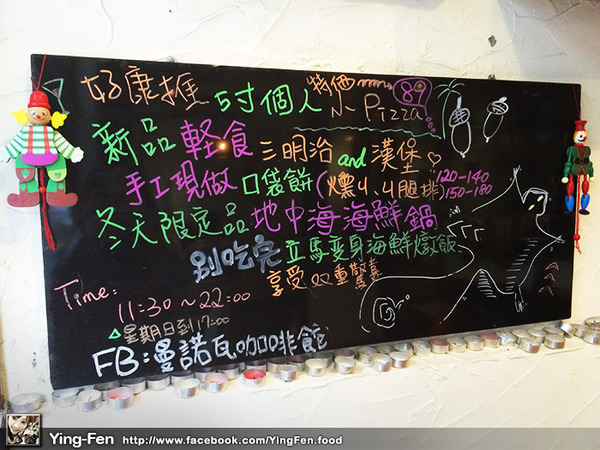 好康推 5寸個人 特価 小 Pizza 89
新品輕食 三明治 and 漢堡
手工現做 口袋餅(燻4.4腿排) 120-140 150-180
冬天限定品 地中海海鮮鍋
別吃完 立馬変身海鮮燉飯
享受双重驚喜
Time:
11:30~22:00
△星期日到17:00
FB:曼諾瓦咖啡館
Ying-Fen http://www.facebook.com/YingFen.food